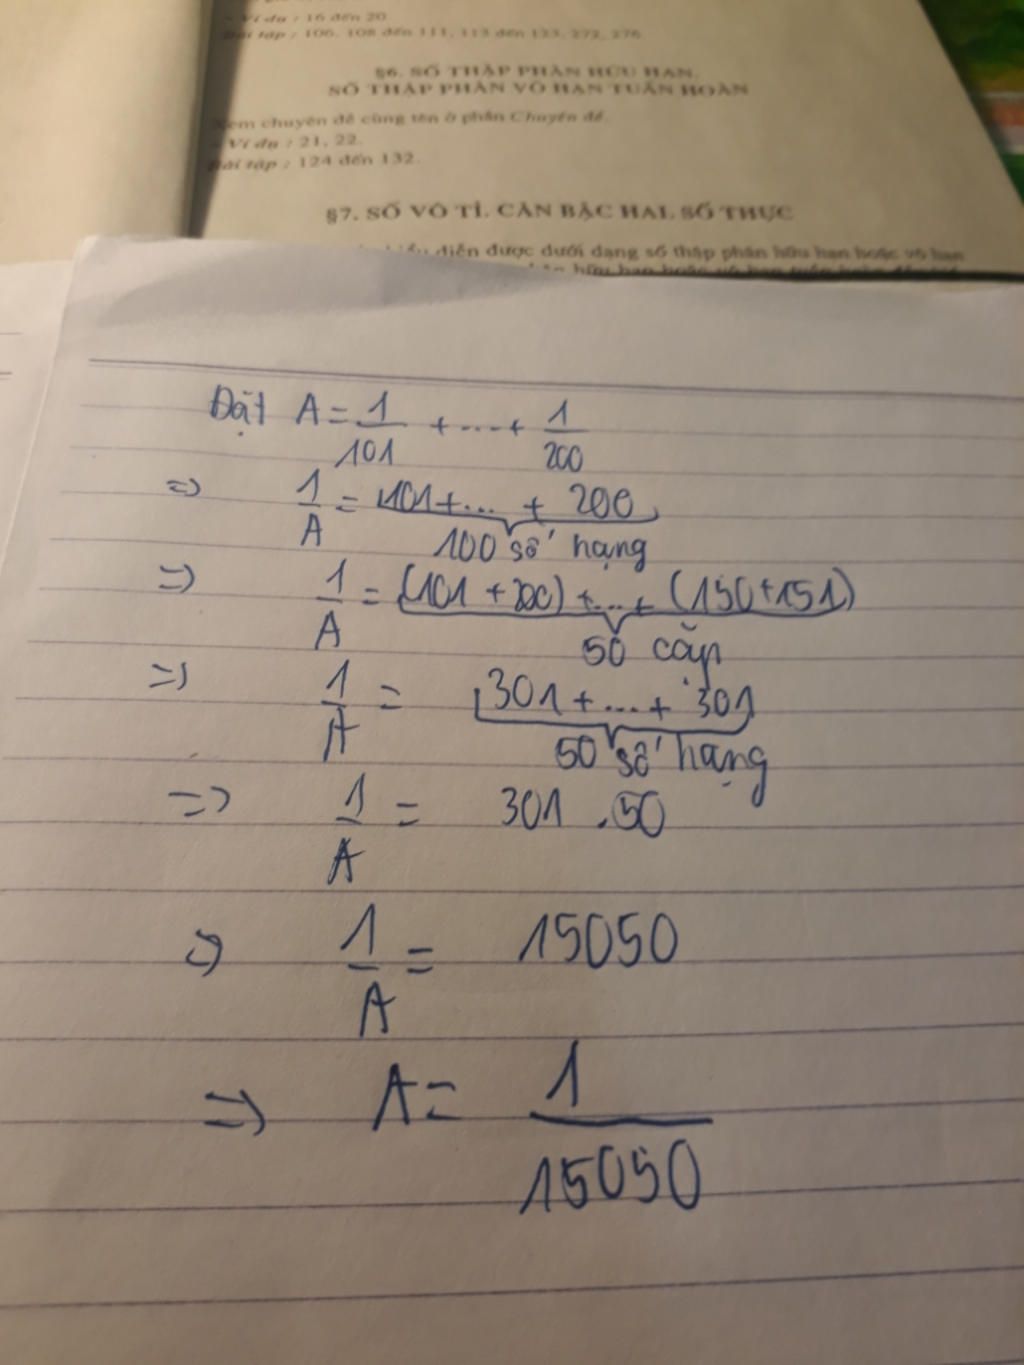 Ví dụ : 16 đến 20.
Bài tập : 106, 108 đến 111, 113 đến 123, 272, 276.
§6. SỐ THẬP PHÂN HỮU HẠN.
SỐ THẬP PHÂN VÔ HẠN TUẦN HOÀN
Xem chuyên đề cùng tên ở phần Chuyên đề.
- Ví dụ : 21, 22.
Bài tập : 124 đến 132.
§7. SỐ VÔ TỈ. CĂN BẬC HAI. SỐ THỰC
diễn được dưới dạng số thập phân hữu hạn hoặc vô hạn
Đặt A = 1/101 + .... + 1/200
=> 1/A = 101 + ... + 200
100 số hạng
=> 1/A = (101 + 200) + ... + (150 + 151)
50 cặp
=> 1/A = 301 + ... + 301
50 số hạng
=> 1/A = 301 . 50
=> 1/A = 15050
=> A = 1/15050